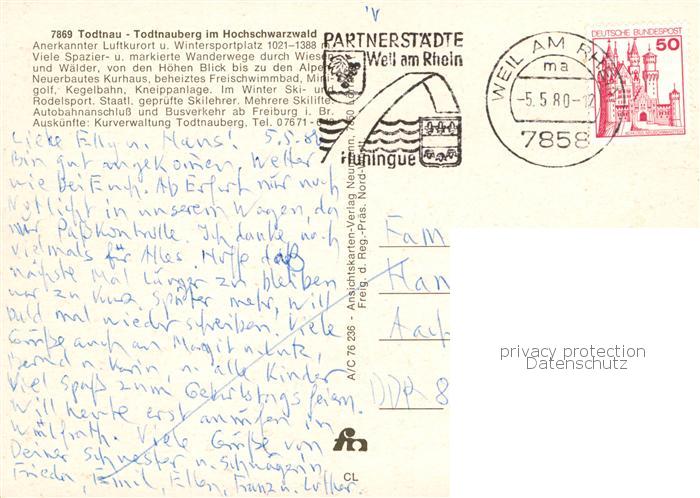 7869 Todtnau - Todtnauberg im Hochschwarzwald
Anerkannter Luftkurort u. Wintersportplatz 1021–1388 m
Viele Spazier- u. markierte Wanderwege durch Wiesen
und Wälder, von den Höhen Blick bis zu den Alpen
Neuerbautes Kurhaus, beheiztes Freischwimmbad, Min
golf, Kegelbahn, Kneippanlage. Im Winter Ski- und
Rodelsport. Staatl. geprüfte Skilehrer. Mehrere Skilifte.
Autobahnanschluß und Busverkehr ab Freiburg i. Br.
Auskünfte: Kurverwaltung Todtnauberg, Tel. 07671-
PARTNERSTÄDTE
Weil am Rhein
Huningue
WEIL AM RHEIN
ma
-5.5.80-12
7858
DEUTSCHE BUNDESPOST
50
Liebe Elly u. Hans! 5.5.80
Bin gut angekommen, Wetter
wie bei Euch. Ab Erfurt nur noch
Rotlicht in unserem Wagen, da
nur Paßkontrolle. Ich danke noch
vielmals für Alles. Hoffe daß
nächste Mal länger zu bleiben
war zu kurz. Später mehr, will
bald mal wieder schreiben. Viele
Grüße auch an Margit u. Lutz,
Bernd u. Karin, u. alle Kinder
Viel Spaß zum Geburtstagsfeiern.
Will heute erst anrufen in
Wülfrath. Viele Grüße von
Deiner Schwester u. Schwägerin
Frieda, Emil, Ellen, Franz u. Lothar.
A/C 76 236 - Ansichtskarten-Verlag
Freig. d. Reg.-Präs. Nord-
Fam
Han
Aac
DDR 8
CL
privacy protection
Datenschutz